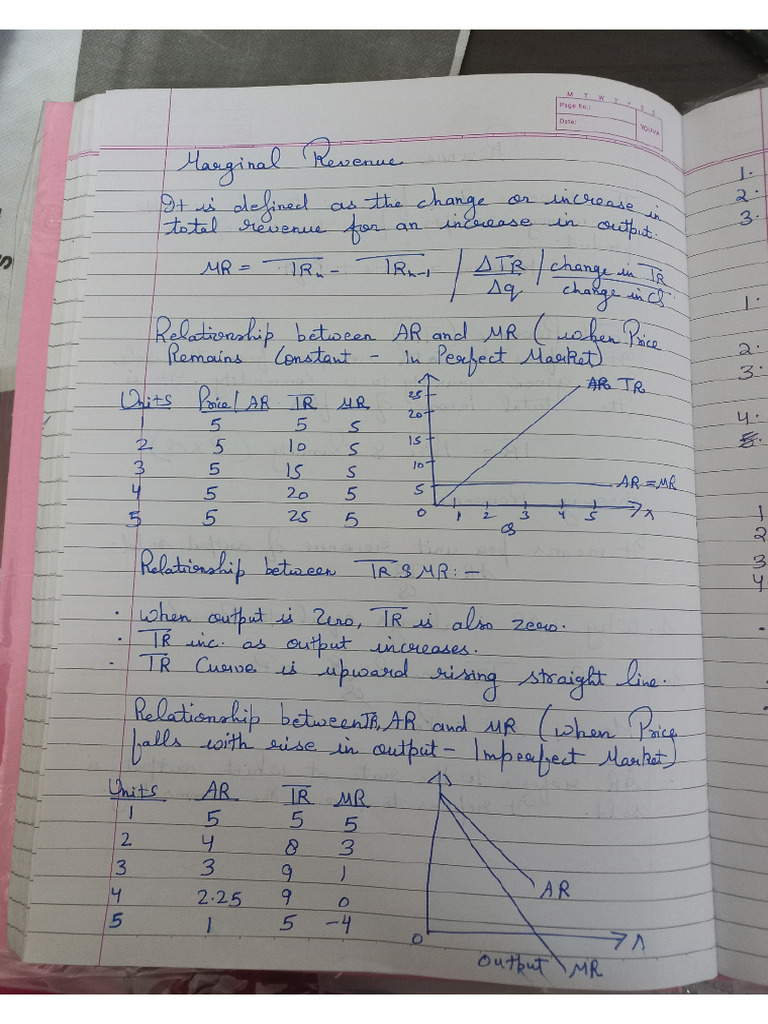 M T W T F S S
Page No.:
Date:
YOUVA
Marginal Revenue
It is defined as the change or increase in
total revenue for an increase in output.
MR = TRn - TRn-1 / ΔTR/Δq / change in TR/change in Q
Relationship between AR and MR (when Price
Remains Constant - In Perfect Market)
Units Price/AR TR MR
1 5 5 5
2 5 10 5
3 5 15 5
4 5 20 5
5 5 25 5
25
20
15
10
5
0 1 2 3 4 5 X
Q
TR
AR = MR
Relationship between TR & MR:-
· When output is zero, TR is also zero.
· TR inc. as output increases.
· TR Curve is upward rising straight line.
Relationship between TR, AR and MR (when Price
falls with rise in output - Imperfect Market)
Units AR TR MR
1 5 5 5
2 4 8 3
3 3 9 1
4 2.25 9 0
5 1 5 -4
AR
0
Output MR
1.
2.
3.
1.
2.
3.
4.
5.
1
2
3
4